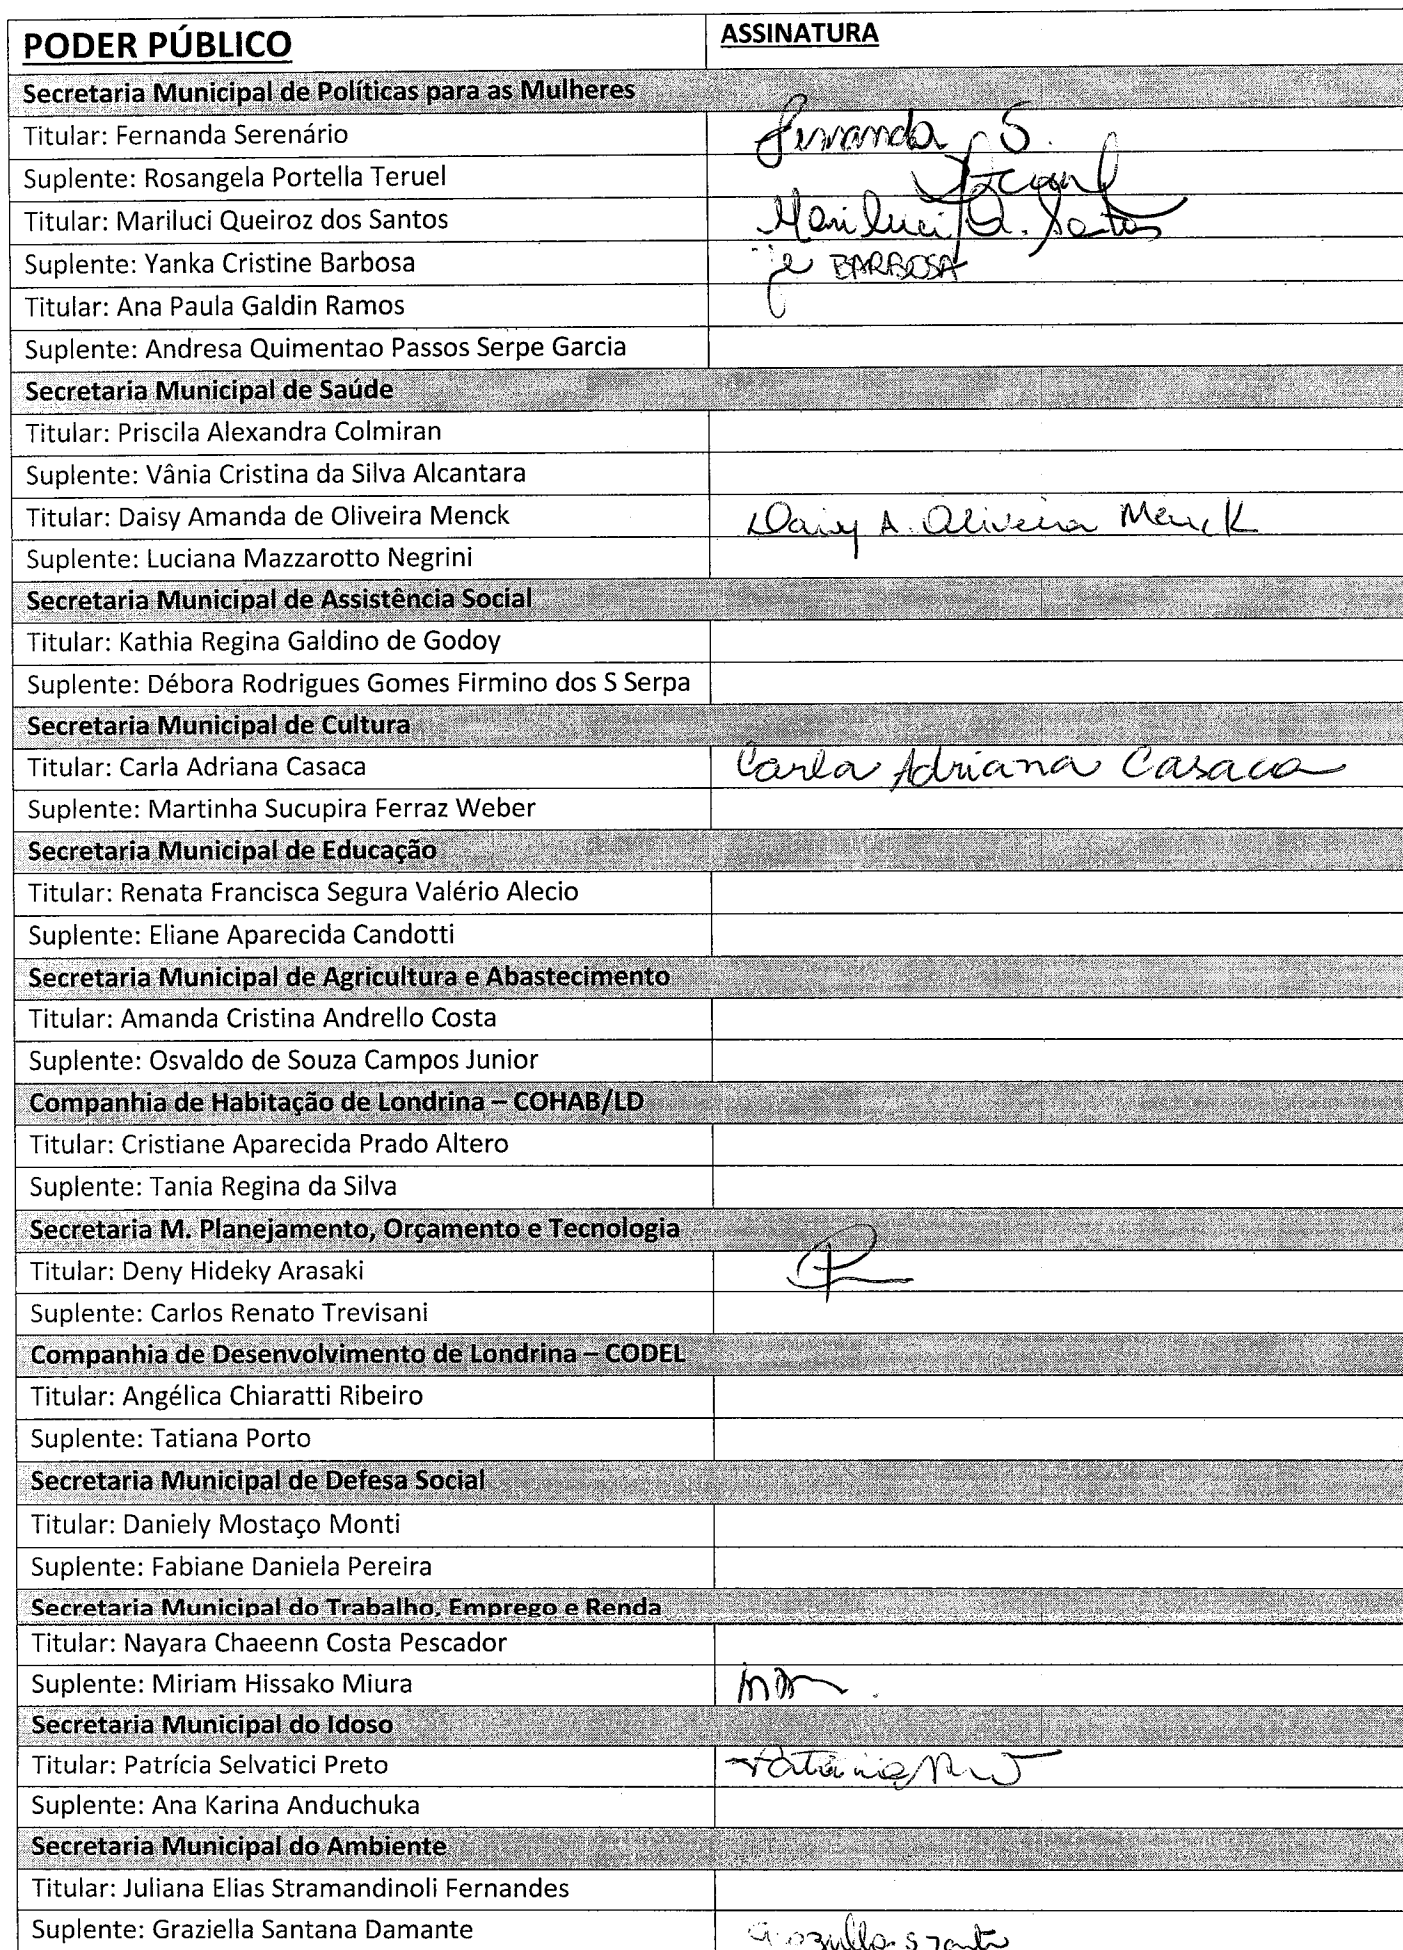 PODER PÚBLICO ASSINATURA
Secretaria Municipal de Políticas para as Mulheres
Titular: Fernanda Serenário Fernanda S.
Suplente: Rosangela Portella Teruel
Titular: Mariluci Queiroz dos Santos Mariluci Q. Santos
Suplente: Yanka Cristine Barbosa BARBOSA
Titular: Ana Paula Galdin Ramos
Suplente: Andresa Quimentao Passos Serpe Garcia
Secretaria Municipal de Saúde
Titular: Priscila Alexandra Colmiran
Suplente: Vânia Cristina da Silva Alcantara
Titular: Daisy Amanda de Oliveira Menck Daisy A. Oliveira Menck
Suplente: Luciana Mazzarotto Negrini
Secretaria Municipal de Assistência Social
Titular: Kathia Regina Galdino de Godoy
Suplente: Débora Rodrigues Gomes Firmino dos S Serpa
Secretaria Municipal de Cultura
Titular: Carla Adriana Casaca Carla Adriana Casaca
Suplente: Martinha Sucupira Ferraz Weber
Secretaria Municipal de Educação
Titular: Renata Francisca Segura Valério Alecio
Suplente: Eliane Aparecida Candotti
Secretaria Municipal de Agricultura e Abastecimento
Titular: Amanda Cristina Andrello Costa
Suplente: Osvaldo de Souza Campos Junior
Companhia de Habitação de Londrina – COHAB/LD
Titular: Cristiane Aparecida Prado Altero
Suplente: Tania Regina da Silva
Secretaria M. Planejamento, Orçamento e Tecnologia
Titular: Deny Hideky Arasaki
Suplente: Carlos Renato Trevisani
Companhia de Desenvolvimento de Londrina – CODEL
Titular: Angélica Chiaratti Ribeiro
Suplente: Tatiana Porto
Secretaria Municipal de Defesa Social
Titular: Daniely Mostaço Monti
Suplente: Fabiane Daniela Pereira
Secretaria Municipal do Trabalho, Emprego e Renda
Titular: Nayara Chaeenn Costa Pescador
Suplente: Miriam Hissako Miura
Secretaria Municipal do Idoso
Titular: Patrícia Selvatici Preto
Suplente: Ana Karina Anduchuka
Secretaria Municipal do Ambiente
Titular: Juliana Elias Stramandinoli Fernandes
Suplente: Graziella Santana Damante